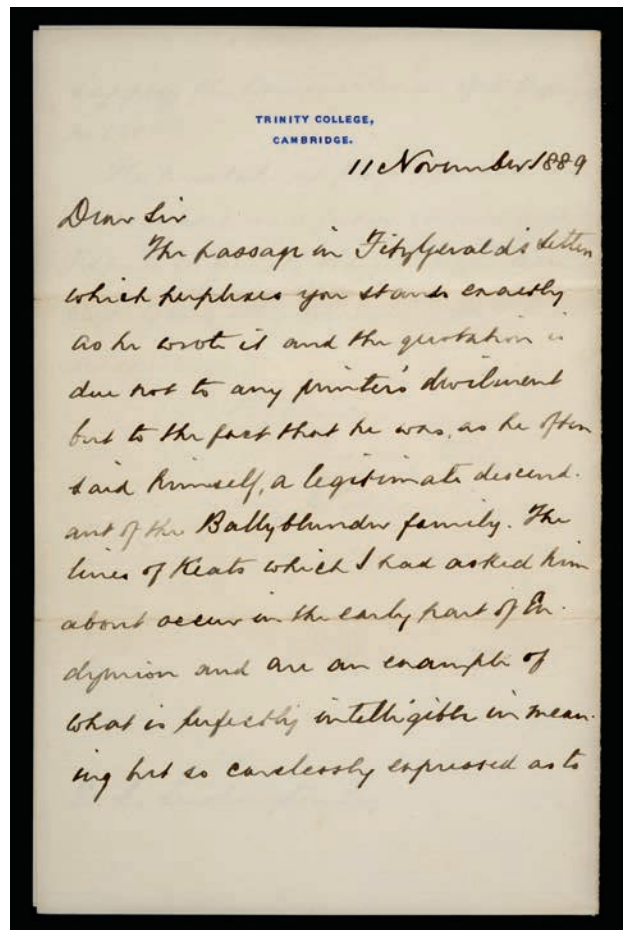 TRINITY COLLEGE,
CAMBRIDGE.
11 November 1889
Dear Sir
The passage in FitzGerald's Letters
which perplexes you stands exactly
as he wrote it and the quotation is
due not to any printer's devilment
but to the fact that he was, as he often
said himself, a legitimate descend-
ant of the Ballyblunder family. The
lines of Keats which I had asked him
about occur in the early part of En-
dymion and are an example of
what is perfectly intelligible in mean-
ing but so carelessly expressed as to